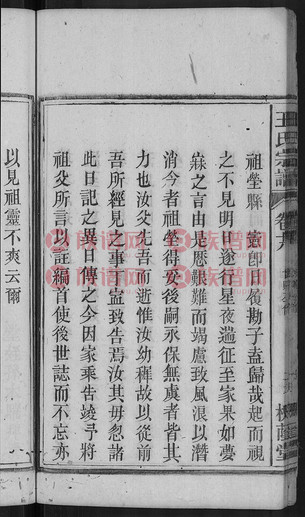 王氏宗譜
卷首
槐蔭堂
祖塋縣憲即日覆勘子盍歸哉起而視
之不見明日遂行星夜遄征至家果如夢
寐之言由是歷艱難而竭慮致風浪以潛
消今者祖塋得安後嗣永保無虞者皆其
力也汝父先吾而逝惟汝幼穉故以從前
吾所經見之事而盡致告焉汝其毋忽諸
此日記之異日傳之今因家乘告竣予將
祖父所言以註編首使後世誌而不忘亦
以見祖靈不爽云爾